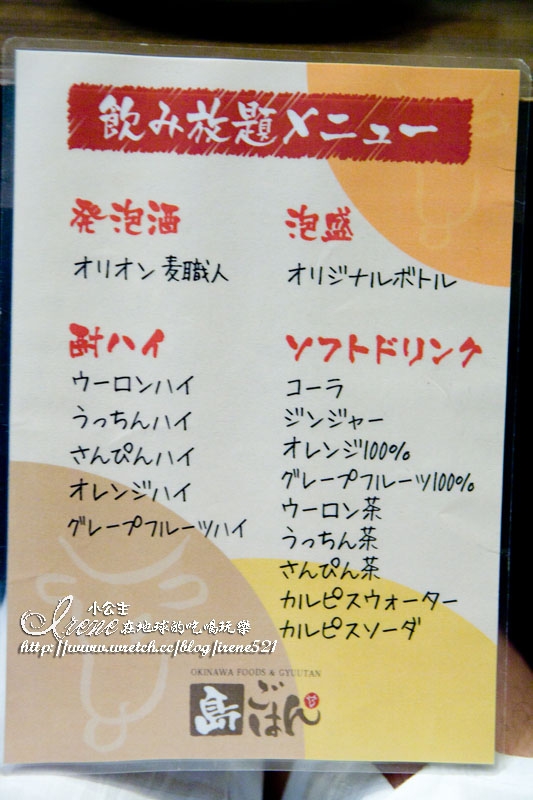 飲み放題メニュー
発泡酒
オリオン麦職人
泡盛
オリジナルボトル
酎ハイ
ウーロンハイ
うっちんハイ
さんぴんハイ
オレンジハイ
グレープフルーツハイ
ソフトドリンク
コーラ
ジンジャー
オレンジ100%
グレープフルーツ100%
ウーロン茶
うっちん茶
さんぴん茶
カルピスウォーター
カルピスソーダ
小公主
Irene在地球的吃喝玩樂
http://www.wretch.cc/blog/irene521
OKINAWA FOODS & GYUUTAN
島ごはん